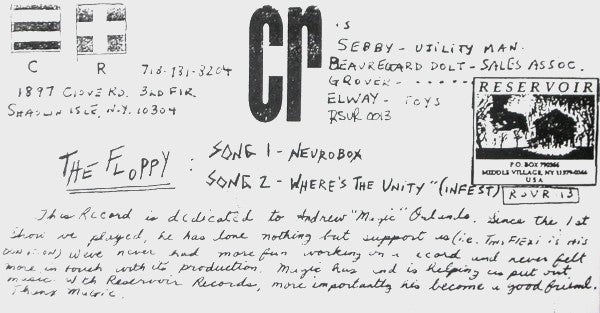 C R
718-131-3204
1897 CLOVE RD. 3RD FLR
SHAOLIN ISLE, N.Y. 10304
cr 's
SEBBY - UTILITY MAN.
BEAUREGARD DOLT - SALES ASSOC.
GROVER - - - - - -
ELWAY - TOYS
RSVR 0013
RESERVOIR
P.O. BOX 790366
MIDDLE VILLAGE, NY 11379-0366
USA
RSVR 13
THE FLOPPY : SONG 1 - NEUROBOX
SONG 2 - WHERE'S THE UNITY" (INFEST)
This Record is dedicated to Andrew "Magic" Orlando. Since the 1st
show we played, he has done nothing but support us (i.e. This FLEXI is HIS
) We've never had more fun working on a record and never felt
more in touch with its production. Magic has and is helping us put out
music with Reservoir Records, more importantly he's become a good friend.
Thanx Magic.